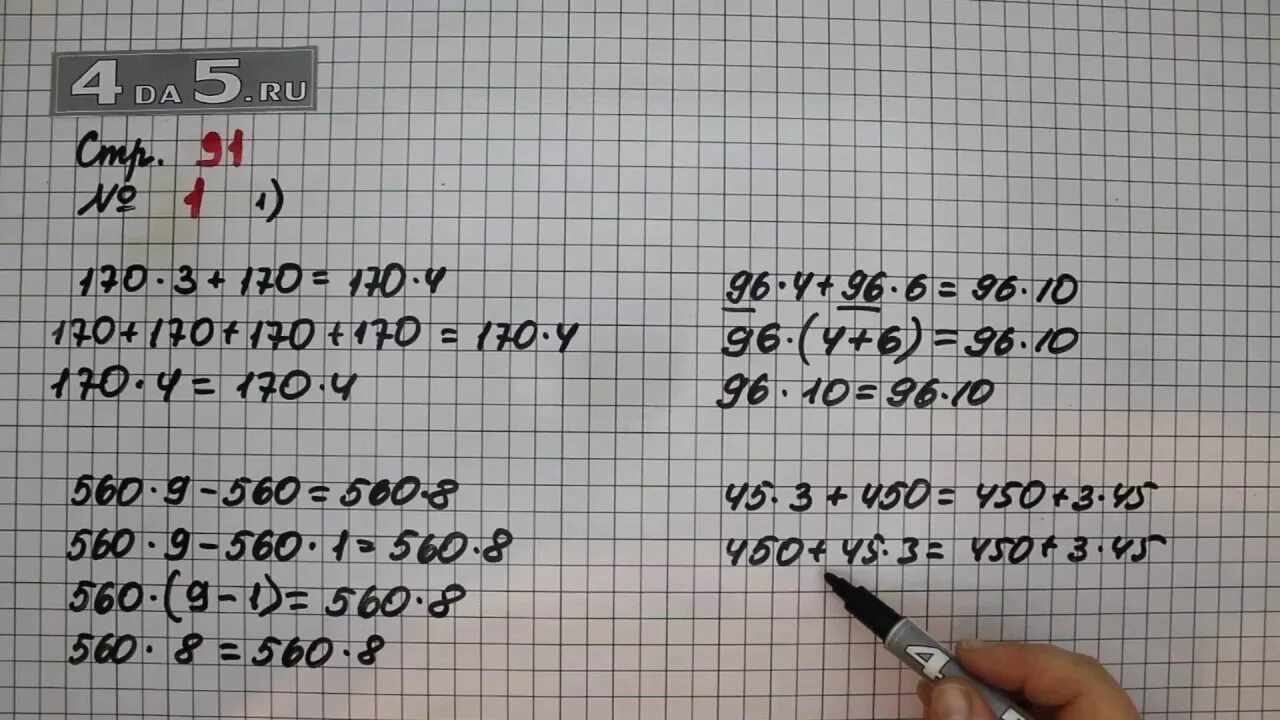 4 DA 5.RU
Стр. 91
№ 1 1)
170·3+170=170·4
170+170+170+170=170·4
170·4=170·4
560·9-560=560·8
560·9-560·1=560·8
560·(9-1)=560·8
560·8=560·8
96·4+96·6=96·10
96·(4+6)=96·10
96·10=96·10
45·3+450=450+3·45
450+45·3=450+3·45
4